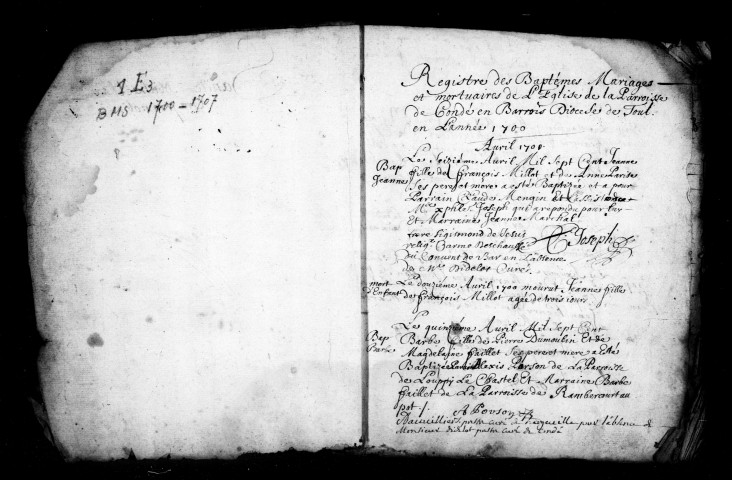 1 E 3
BMS 1700 - 1707
Registre des Baptémes Mariages
et mortuaires de L'Eglise de la Parroisse
de Condé en Barrois Diocese de Toul
en L'année 1700
Avril 1700
Bap
Jeanne
Le Avril Mil Sept Cent Jeanne
ffille de François Millot et de Anne
Ses pere et mere a esté Baptizée et a pour
Parrain Claude Mengin
Joseph qui a repondu pour luy
Et Marraine Jeanne Marchal
frere Sigismond de Jesus
relig. Carme Deschaussé Joseph
du Convent de Bar en L'absence
de Mr Didelot Curé
mort
d'Enfant
Le douziéme Avril 1700 mourut Jeanne ffille
de François Millot agée de trois jours
Bap
Barbe
Les quinziéme Avril Mil Sept Cent
Barbe filles de Pierre Dumoulin Et de
Magdelaine faillet Ses pere et mere a esté
Baptizée Parrain Alexis Person de La Paroisse
de Louppi Le Chastel Et Marraine Barbe
faillet de La Parroisse de Rambercourt au
pot /. A Person
curé pour l'absence de
Monsieur didelot curé de Condé